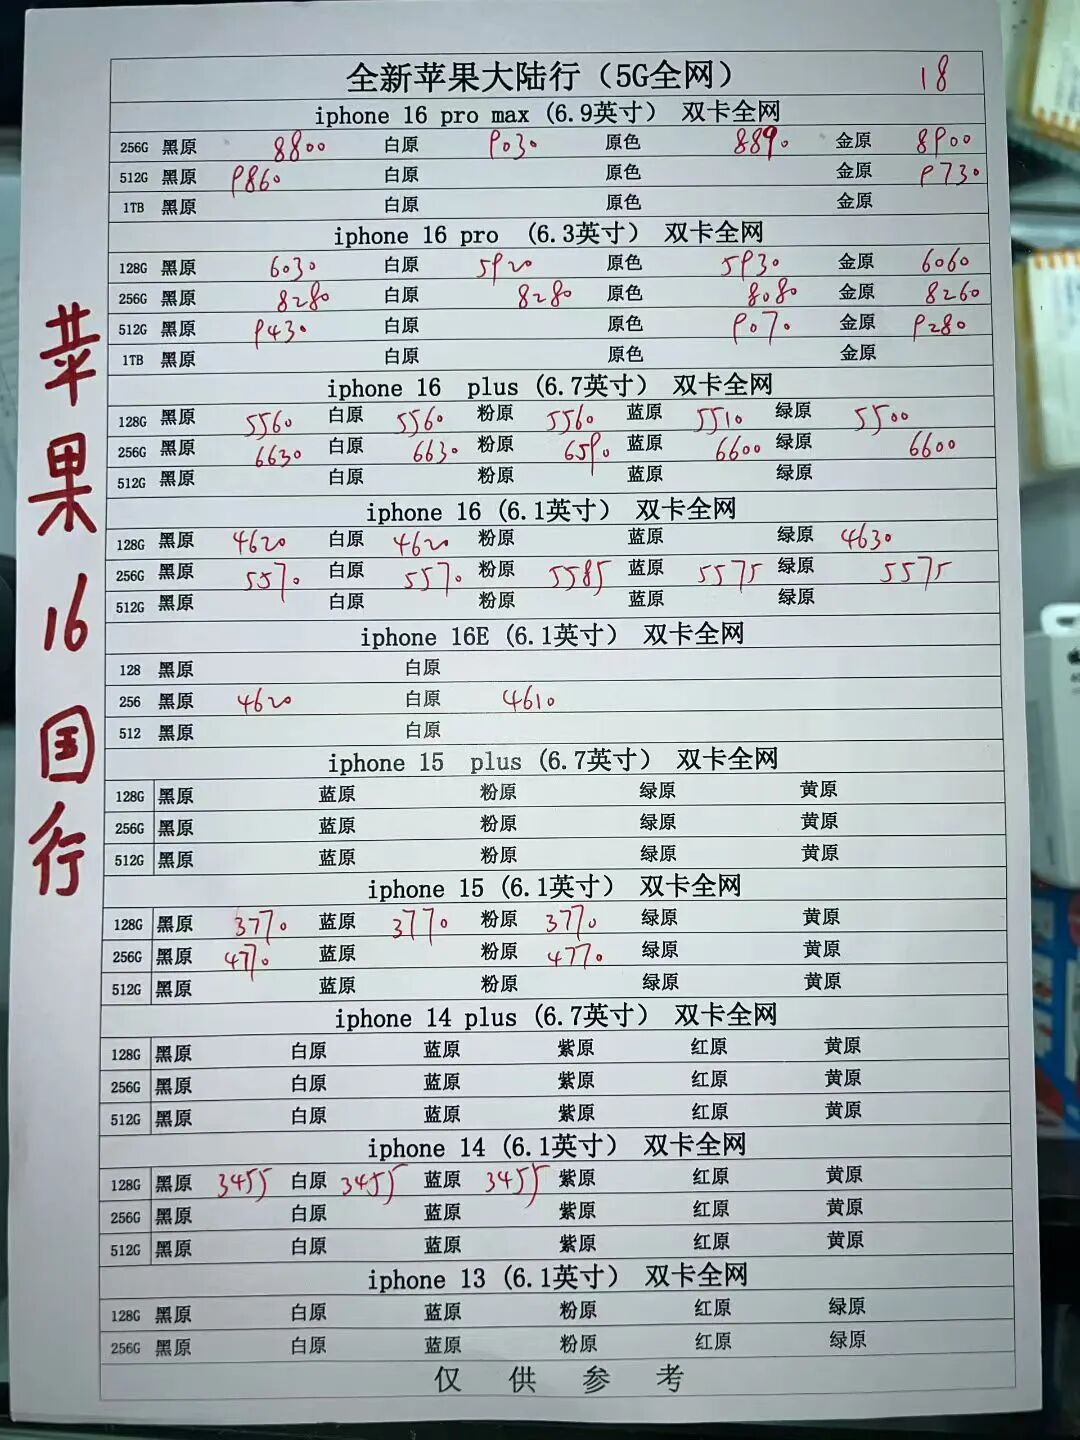 全新苹果大陆行（5G全网） 18
iphone 16 pro max (6.9英寸） 双卡全网
256G 黑原 8800 白原 9030 原色 8890 金原 8900
512G 黑原 9860 白原 原色 金原 9730
1TB 黑原 白原 原色 金原
iphone 16 pro （6.3英寸） 双卡全网
128G 黑原 6030 白原 5920 原色 5930 金原 6060
256G 黑原 8280 白原 8280 原色 8080 金原 8260
512G 黑原 9430 白原 原色 9070 金原 9280
1TB 黑原 白原 原色 金原
iphone 16 plus (6.7英寸） 双卡全网
128G 黑原 5560 白原 5560 粉原 5560 蓝原 5510 绿原 5500
256G 黑原 6630 白原 6630 粉原 6590 蓝原 6600 绿原 6600
512G 黑原 白原 粉原 蓝原 绿原
iphone 16 (6.1英寸） 双卡全网
128G 黑原 4620 白原 4620 粉原 蓝原 绿原 4630
256G 黑原 5570 白原 5570 粉原 5585 蓝原 5575 绿原 5575
512G 黑原 白原 粉原 蓝原 绿原
iphone 16E (6.1英寸） 双卡全网
128 黑原 白原
256 黑原 4620 白原 4610
512 黑原 白原
iphone 15 plus (6.7英寸） 双卡全网
128G 黑原 蓝原 粉原 绿原 黄原
256G 黑原 蓝原 粉原 绿原 黄原
512G 黑原 蓝原 粉原 绿原 黄原
iphone 15 (6.1英寸） 双卡全网
128G 黑原 3770 蓝原 3770 粉原 3770 绿原 黄原
256G 黑原 4770 蓝原 粉原 4770 绿原 黄原
512G 黑原 蓝原 粉原 绿原 黄原
iphone 14 plus (6.7英寸） 双卡全网
128G 黑原 白原 蓝原 紫原 红原 黄原
256G 黑原 白原 蓝原 紫原 红原 黄原
512G 黑原 白原 蓝原 紫原 红原 黄原
iphone 14 (6.1英寸） 双卡全网
128G 黑原 3455 白原 3455 蓝原 3455 紫原 红原 黄原
256G 黑原 白原 蓝原 紫原 红原 黄原
512G 黑原 白原 蓝原 紫原 红原 黄原
iphone 13 (6.1英寸） 双卡全网
128G 黑原 白原 蓝原 粉原 红原 绿原
256G 黑原 白原 蓝原 粉原 红原 绿原
仅供参考
苹果16国行